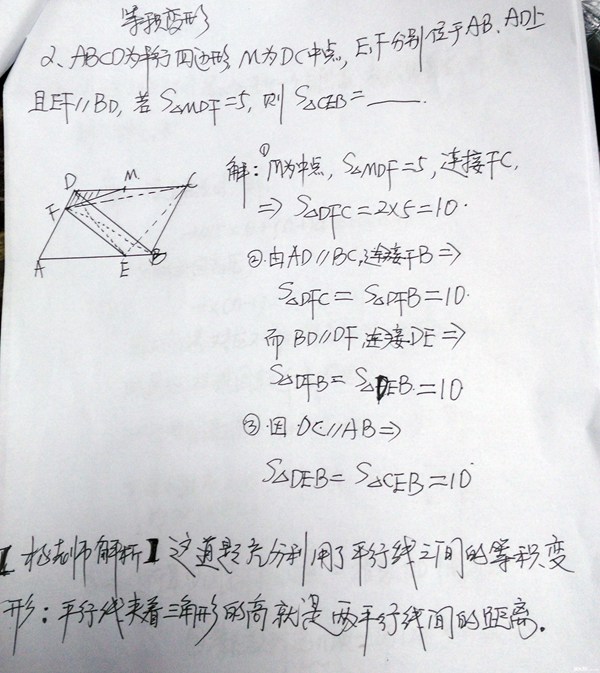 等积变形
2、ABCD为平行四边形 M为DC中点, E,F分别位于AB、AD上
且EF//BD, 若S△MDF=5, 则S△CEB=____.
D M C
F
A E B
解: ①M为中点, S△MDF=5, 连接FC,
⇒ S△DFC=2×5=10.
②由AD//BC,连接FB⇒
S△DFC=S△DFB=10.
而 BD//DF, 连接DE⇒
S△DFB=S△DEB.=10
③.因 DC//AB⇒
S△DEB=S△CEB=10
老师解析】这道题充分利用了平行线之间的等积变
形:平行线夹着三角形的高就是两平行线间的距离.